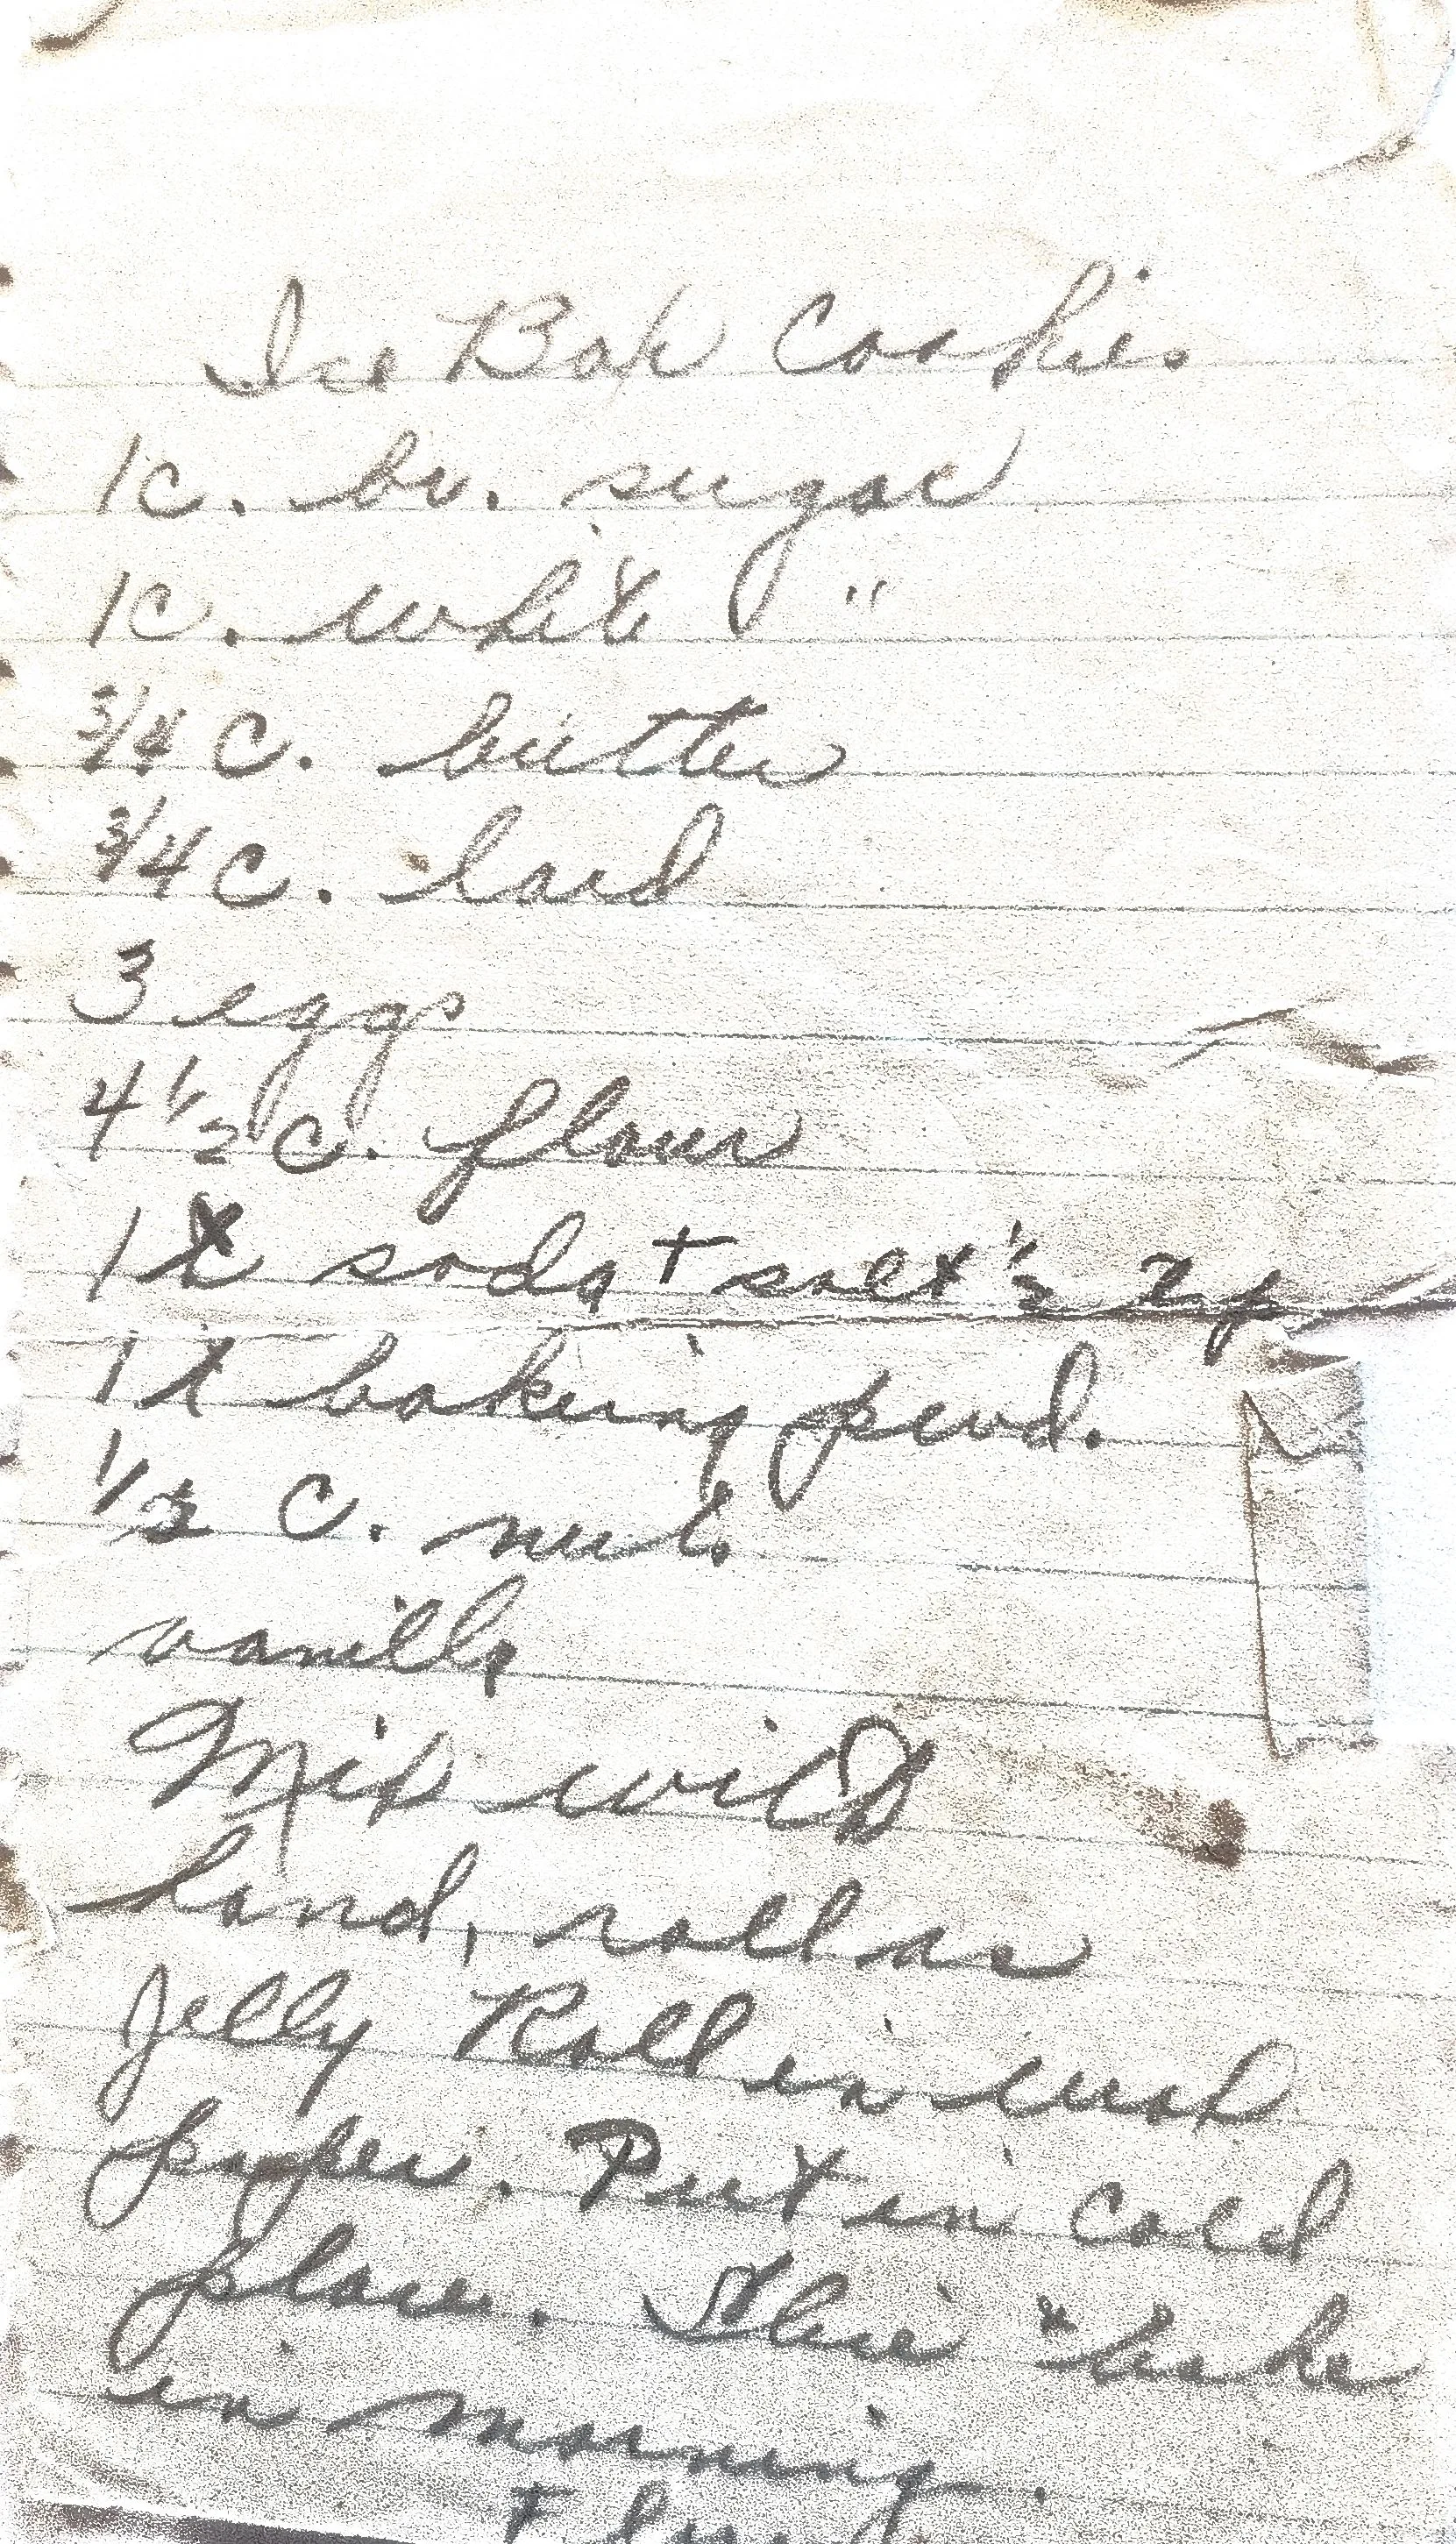 Ice Box Cookies
1c. br. sugar
1c. white "
3/4 c. butter
3/4 c. lard
3 eggs
4 1/2 c. flour
1t soda + salt 1/2
1t baking pwd.
1/2 c. nuts
vanilla
Mix with
hand, roll as
Jelly Roll in wax
paper. Put in cold
place. Slice & bake
in morning.